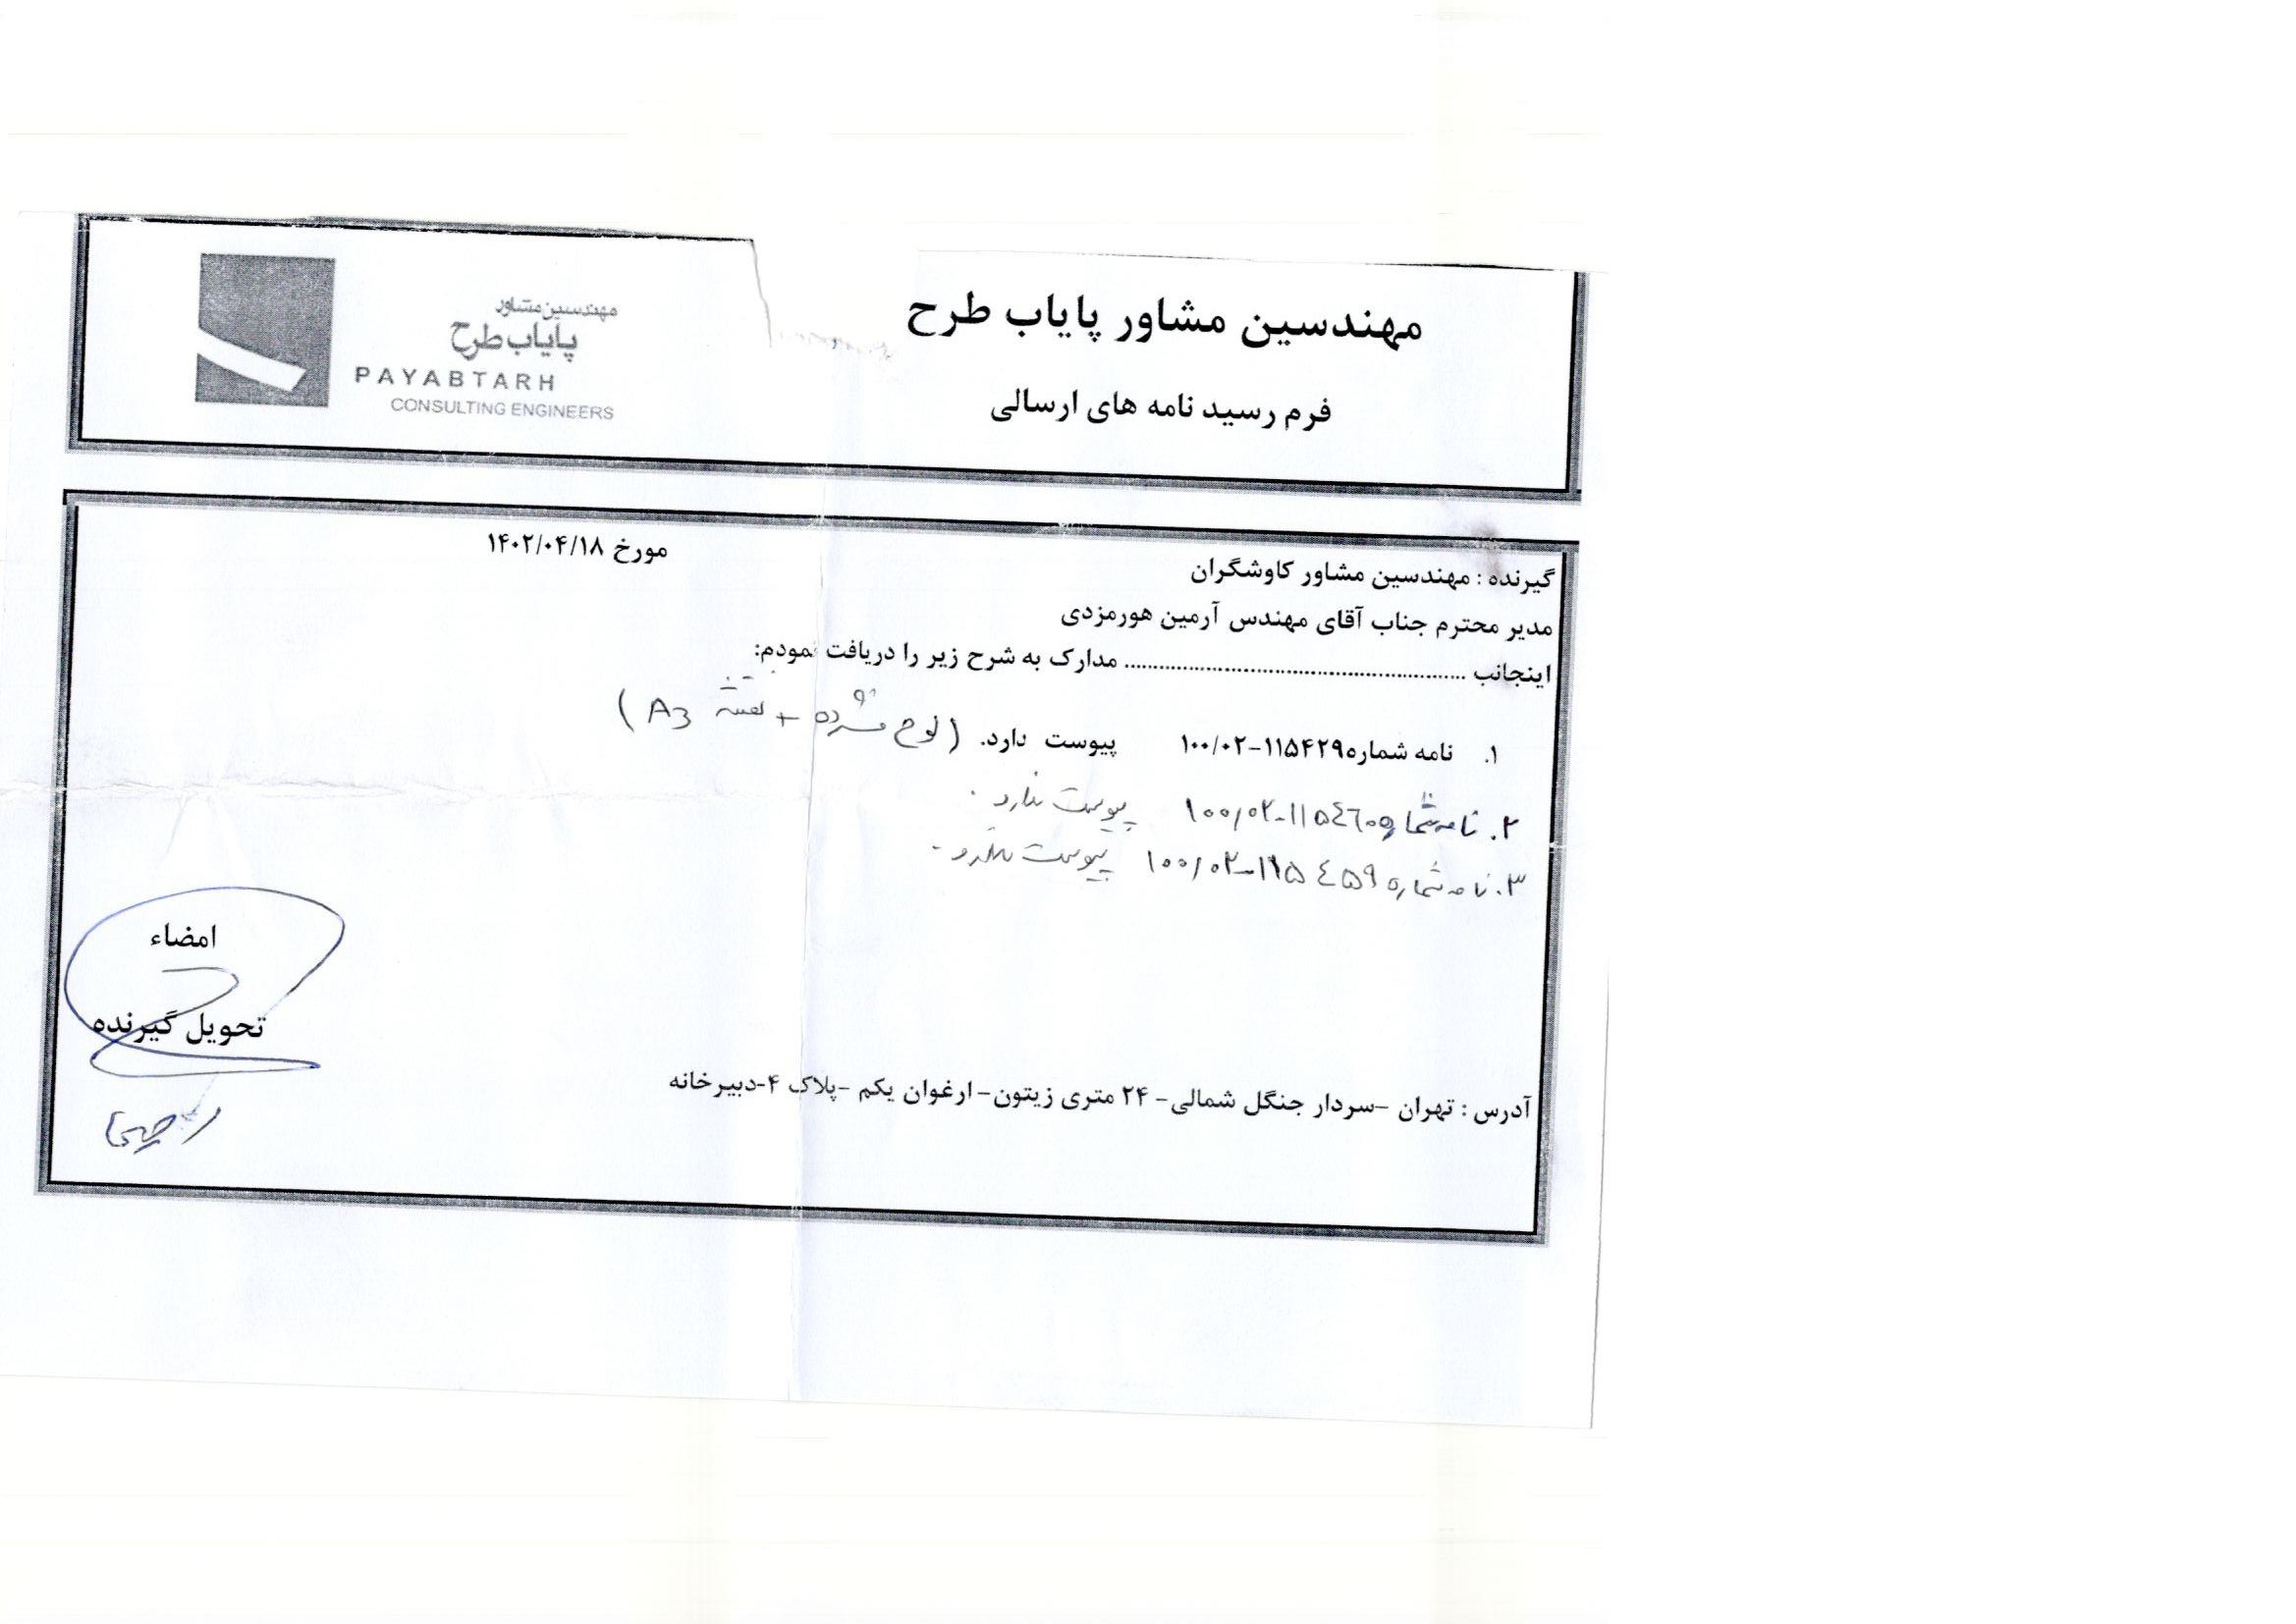 مهندسین مشاور پایاب طرح
فرم رسید نامه های ارسالی
مهندسین مشاور
پایاب طرح
PAYABTARH
CONSULTING ENGINEERS
مورخ ۱۴۰۲/۰۴/۱۸
گیرنده : مهندسین مشاور کاوشگران
مدیر محترم جناب آقای مهندس آرمین هورمزدی
اینجانب .................................................................. مدارک به شرح زیر را دریافت نمودم:
۱. نامه شماره۱۱۵۴۲۹-۱۰۰/۰۲ پیوست دارد. (لوح فشرده + نقشه A3)
۲. نامه شماره ۱۱۵۴۶۰-۱۰۰/۰۲ پیوست ندارد.
۳. نامه شماره ۱۱۵۴۵۹-۱۰۰/۰۲ پیوست ندارد.
امضاء
تحویل گیرنده
آدرس : تهران –سردار جنگل شمالی- ۲۴ متری زیتون- ارغوان یکم –پلاک ۴-دبیرخانه